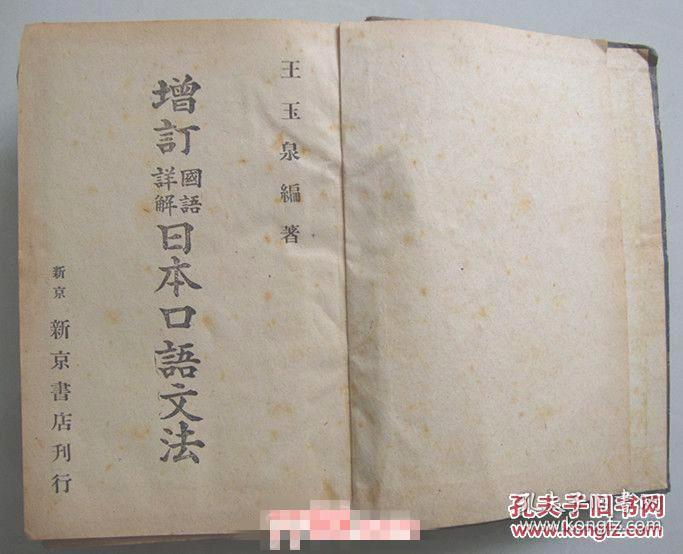 王玉泉編著
增訂國語詳解日本口語文法
新京 新京書店刊行
孔夫子旧书网
www.kongfz.com